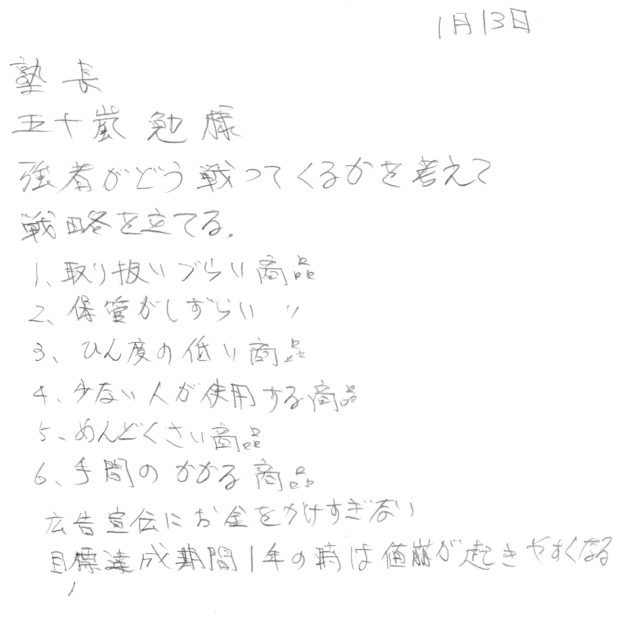 1月13日
塾長
五十嵐勉様
強者がどう戦ってくるかを考えて
戦略を立てる.
1、取り扱いづらい商品
2、保管がしずらい 〃
3、ひん度の低い商品
4、少ない人が使用する商品
5、めんどくさい商品
6、手間のかかる商品
広告宣伝にお金をかけすぎない
目標達成期間1年の時は値崩が起きやすくなる